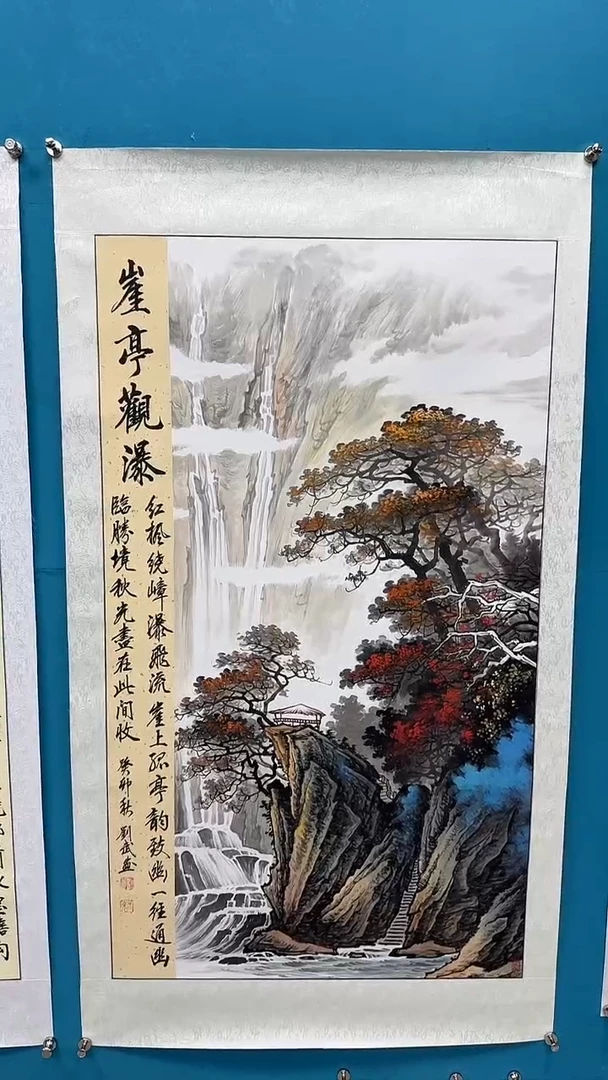 崖亭觀瀑
红楓绕嶂瀑飛流崖上孤亭韵致幽一径通幽
臨勝境秋光盡在此间收
癸卯秋劉武画